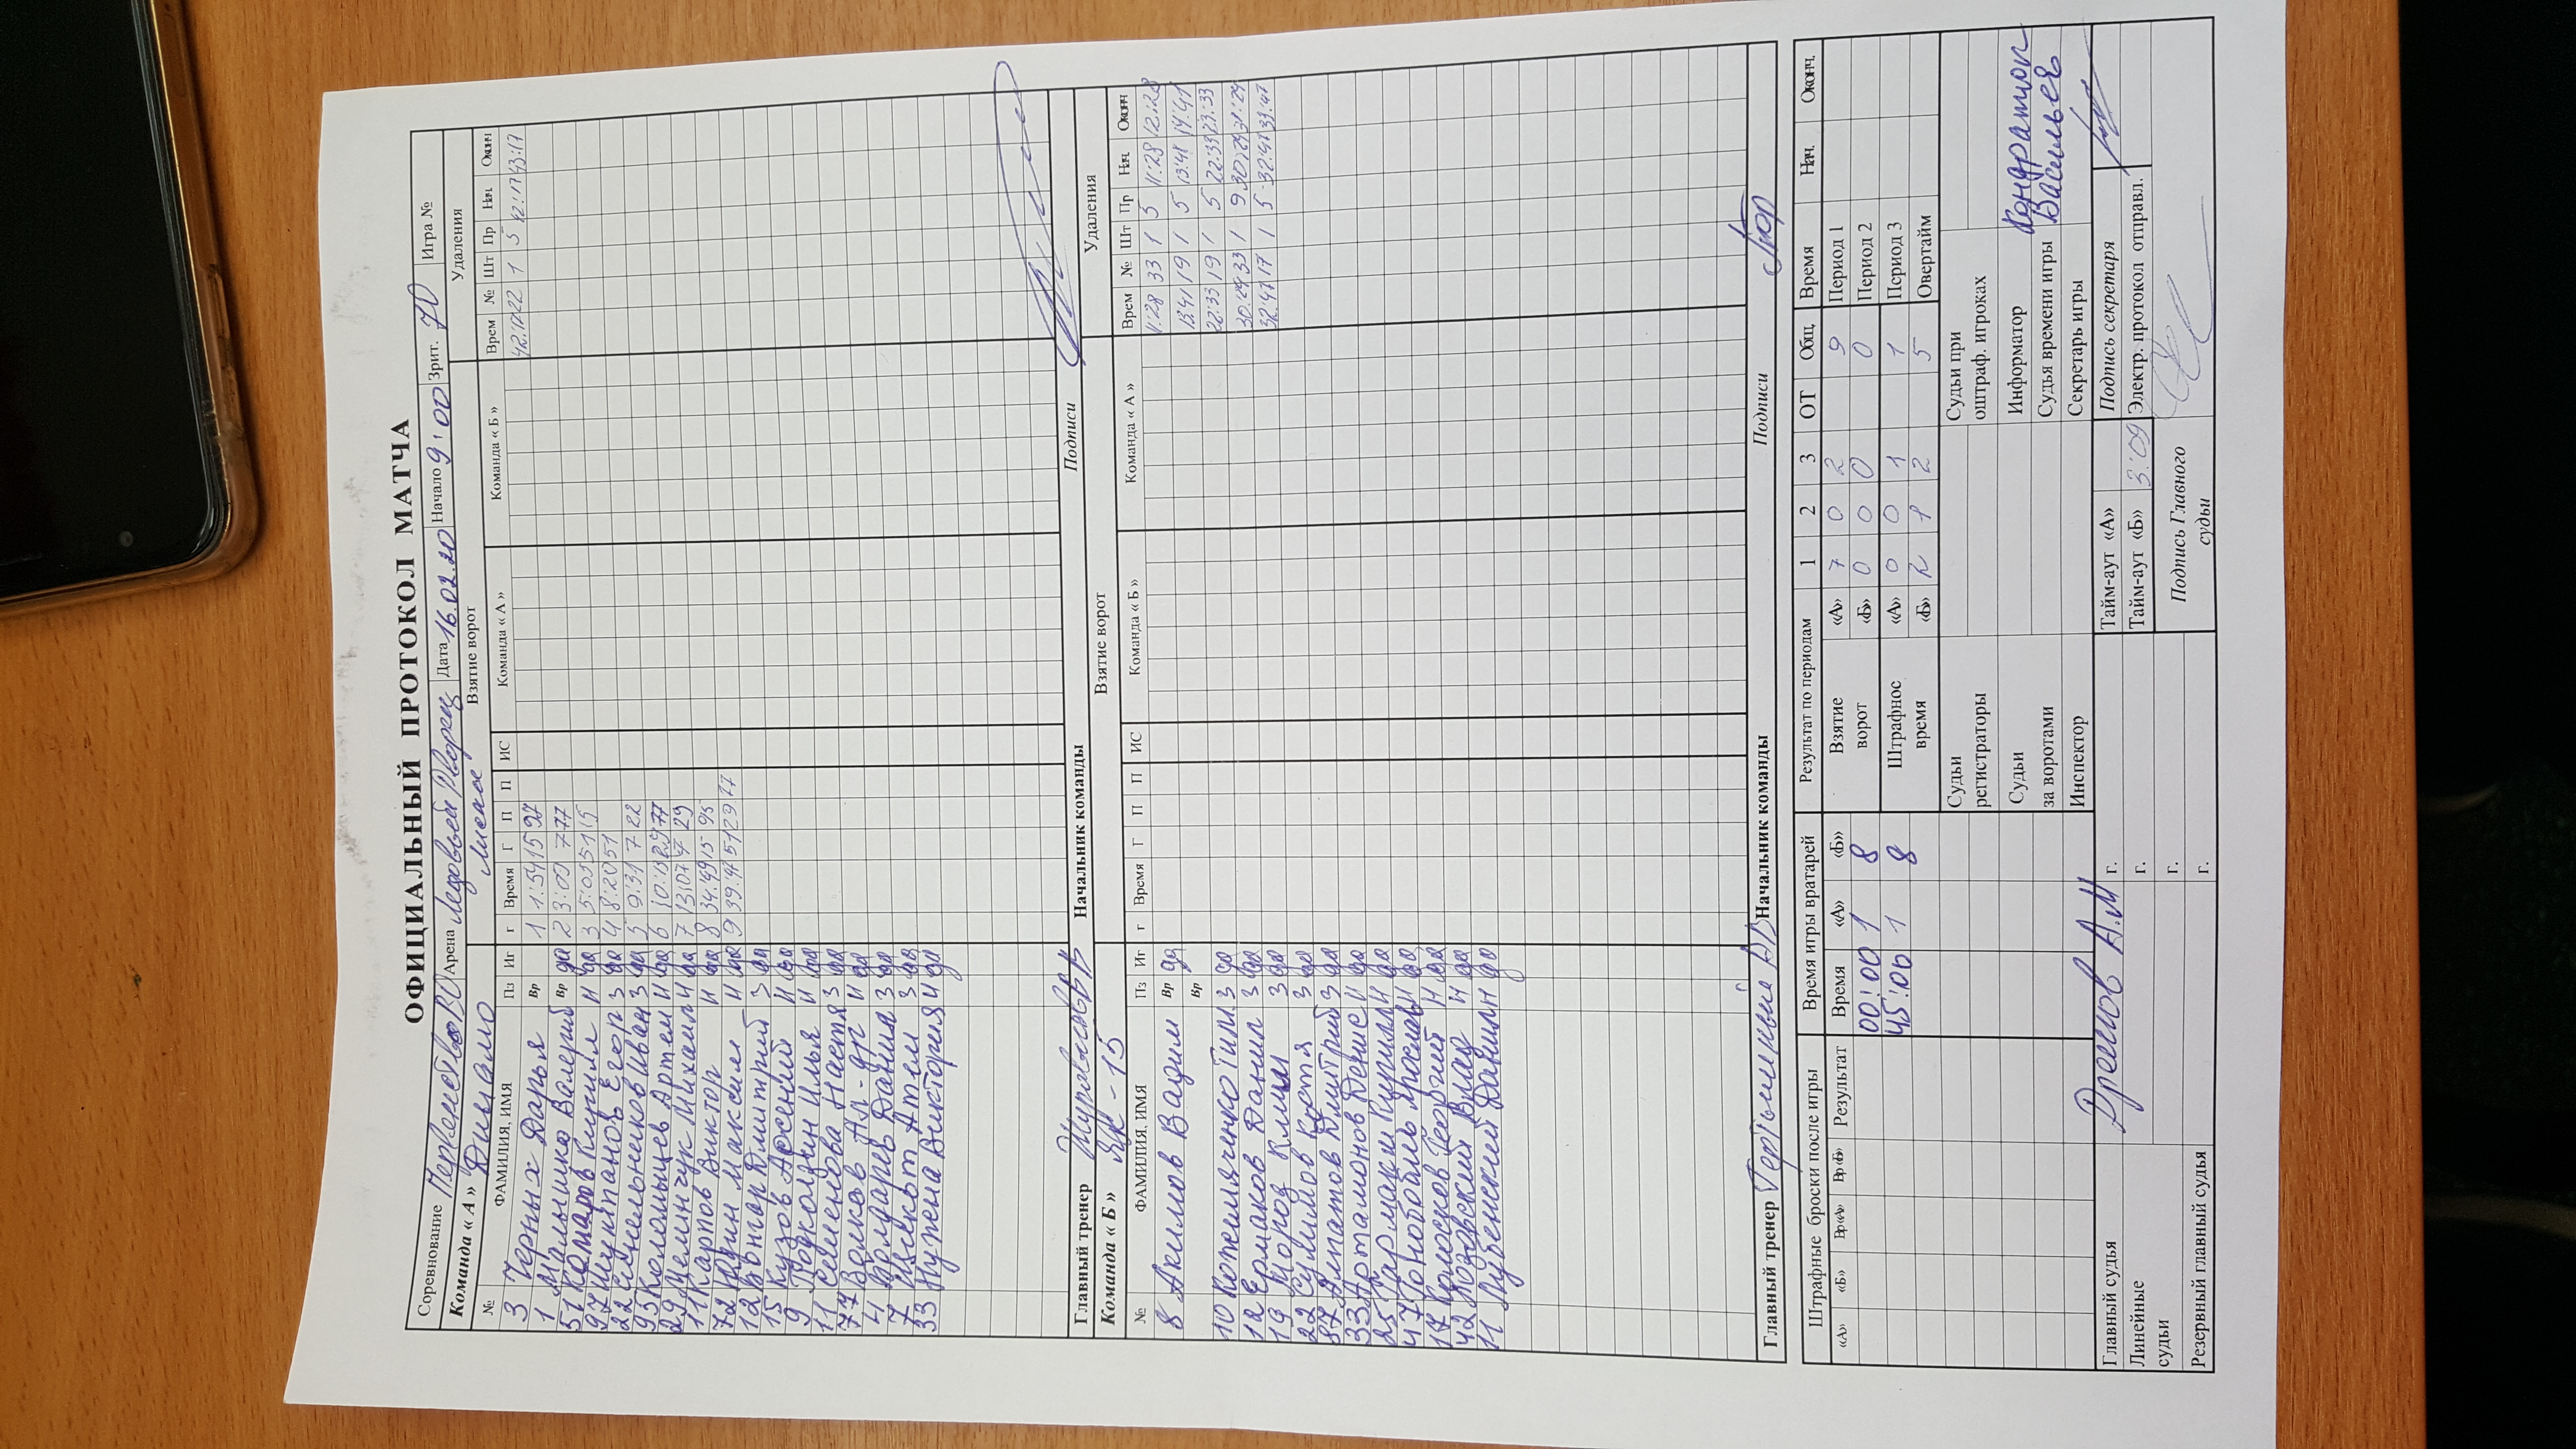 ОФИЦИАЛЬНЫЙ ПРОТОКОЛ МАТЧА
Соревнование Первенство ВО Арена Ледовый Дворец Дата 16.02.20 Начало 9:00 Зрит. 70 Игра №
Команда «А» Динамо Взятие ворот Удаления
№ ФАМИЛИЯ, ИМЯ Пз Иг г Время Г П П ИС Команда «А» Команда «Б» Врем № Шт Пр Нач. Оконч
3 Черных Дарья Вр 1 1:54 15 97 42:17 22 1 5 42:17 43:17
1 Малышко Валерий Вр да 2 3:09 7 77
51 Комаров Кирилл Н да 3 5:03 51 15
97 Шукпанов Егор З да 4 8:20 51
22 Синельников Иван З да 5 9:31 7 22
93 Коломыцев Артем Н да 6 10:13 29 77
29 Мелинчук Михаил Н да 7 13:07 7 29
11 Карпов Виктор Н да 8 34:49 15 93
72 Юдин Максим Н да 9 39:47 51 29 77
12 Вонгар Дмитрий З да
15 Кузов Арсений Н да
9 Подколзин Илья Н да
11 Семенова Настя З да
77 Волков Ал-др Н да
4 Бондарев Данила З да
7 Щекот Атем З да
33 Нужена Виктория Н да
Главный тренер Начальник команды Подписи
Команда «Б» ЯК-15 Взятие ворот Удаления
№ ФАМИЛИЯ, ИМЯ Пз Иг г Время Г П П ИС Команда «Б» Команда «А» Врем № Шт Пр Нач. Оконч
8 Акимов Вадим Вр да 11:28 33 1 5 11:28 12:28
Вр 13:41 19 1 5 13:41 14:41
10 Кожемяченко Тим. З да 22:33 19 1 5 22:33 23:33
12 Ермаков Данил З да 30:29 33 1 9 30:29 31:29
19 Мороз Клим З да 32:47 17 1 5 32:47 33:47
22 Сулимов Костя З да
87 Алпатов Дмитрий З да
33 Артамонов Денис Н да
25 Гармаш Кирилл Н да
47 Конобаль Ярослав Н да
17 Колосков Георгий Н да
42 Лозовский Влад Н да
11 Лубенский Данил Н да
Главный тренер Начальник команды Подписи
Штрафные броски после игры Время игры вратарей Результат по периодам 1 2 3 ОТ Общ. Время Нач. Оконч.
«А» «Б» Вр«А» Вр«Б» Результат Время «А» «Б» Взятие ворот «А» 7 0 2 9 Период 1
00:00 1 8 «Б» 0 0 0 0 Период 2
45:00 1 8 Штрафное время «А» 0 0 1 1 Период 3
«Б» 2 1 2 5 Овертайм
Судьи регистраторы Судьи при оштраф. игроках
Судьи за воротами Информатор Кондратюк
Судья времени игры Васильев
Инспектор Секретарь игры
Главный судья Дремов А.М г. Тайм-аут «А» Подпись секретаря
Линейные судьи г. Тайм-аут «Б» 3:09 Электр. протокол отправл.
г. Подпись Главного судьи
Резервный главный судья г.